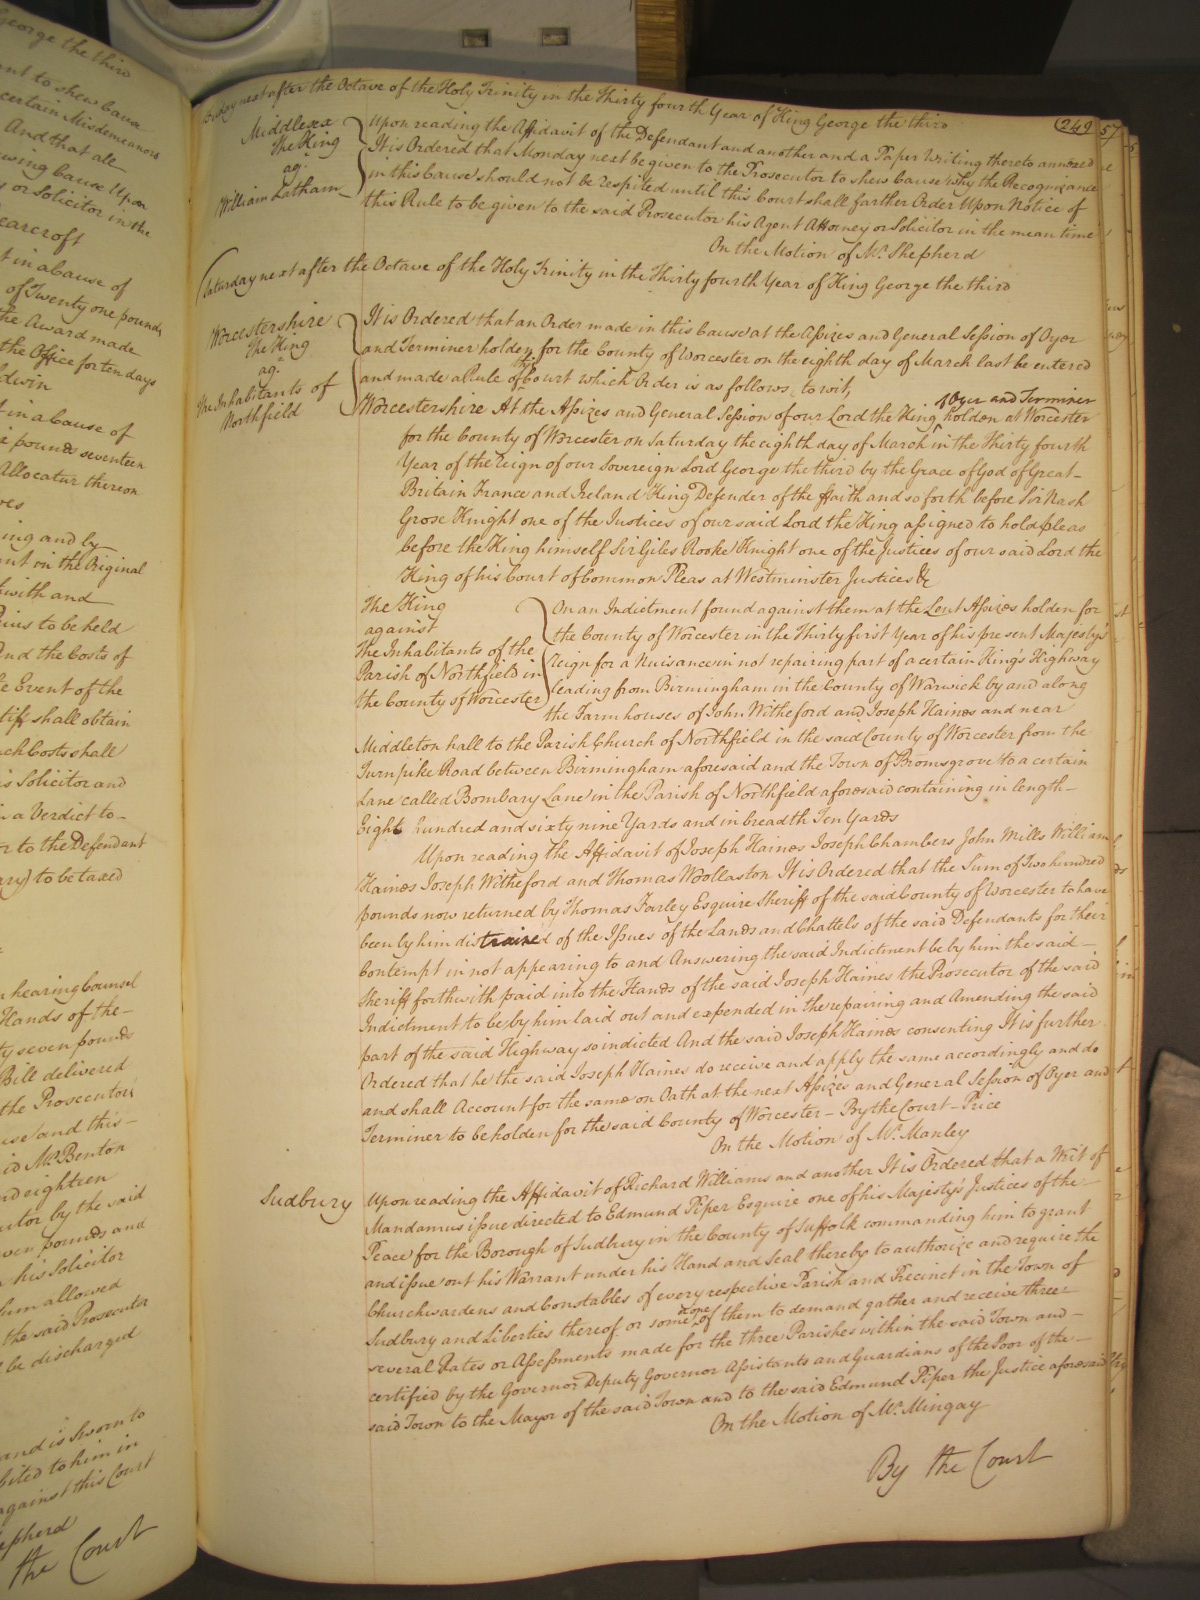 George the third
ant to shew Cause
certain Misdemeanors
And that all
ewing cause Upon
y or Solicitor in the
earcroft
t in a Cause of
of Twenty one pounds
the Award made
the Office for ten days
ldwin
t in a Cause of
pounds seventeen
Allocatur thereon
ves
ing and by
ant on the Original
with and
rius to be held
And the Costs of
e Event of the
tiff shall obtain
uch Costs shall
is Solicitor and
a Verdict to
r to the Defendant
ary) to be taxed
hearing Counsel
Hands of the
ty seven pounds
Bill delivered
the Prosecutor
use and this
id Mr. Benton
nd eighteen
utor by the said
ven pounds and
his Solicitor
him allowed
the said Prosecutor
be discharged
and is Sworn to
bited to him in
against this Court
epherd
the Court
(249
57
Friday next after the Octave of the Holy Trinity in the Thirty fourth Year of King George the third
Middlesex
The King
agt.
William Latham
Upon reading the Affidavit of the Defendant and another and a Paper Writing thereto annexed
It is Ordered that Monday next be given to the Prosecutor to shew Cause why the Recognizance
in this Cause should not be respited until this Court shall farther Order Upon Notice of
this Rule to be given to the said Prosecutor his Agent Attorney or Solicitor in the mean time
On the Motion of Mr. Shepherd
Saturday next after the Octave of the Holy Trinity in the Thirty fourth Year of King George the third
Worcestershire
The King
agt.
The Inhabitants of
Northfield
It is Ordered that an Order made in this Cause at the Assizes and General Session of Oyer
and Terminer holden for the County of Worcester on the eighth day of March last be entered
and made a Rule of this Court which Order is as follows, to wit,
Worcestershire At the Assizes and General Session of our Lord the King of Oyer and Terminer holden at Worcester
for the County of Worcester on Saturday the eighth day of March in the Thirty fourth
Year of the Reign of our Sovereign Lord George the third by the Grace of God of Great
Britain France and Ireland King Defender of the Faith and so forth before Sir Nash
Grose Knight one of the Justices of our said Lord the King assigned to hold pleas
before the King himself Sir Giles Rooke Knight one of the Justices of our said Lord the
King of his Court of Common Pleas at Westminster Justices &c
The King
against
The Inhabitants of the
Parish of Northfield in
the County of Worcester
On an Indictment found against them at the Lent Assizes holden for
the County of Worcester in the Thirty first Year of his present Majesty's
reign for a Nuisance in not repairing part of a certain King's Highway
leading from Birmingham in the County of Warwick by and along
the Farm houses of John Witheford and Joseph Haines and near
Middleton hall to the Parish Church of Northfield in the said County of Worcester from the
Turnpike Road between Birmingham aforesaid and the Town of Bromsgrove to a certain
Lane called Bombary Lane in the Parish of Northfield aforesaid containing in length
Eight hundred and sixty nine Yards and in breadth Ten Yards
Upon reading the Affidavit of Joseph Haines Joseph Chambers John Mills William
Haines Joseph Witheford and Thomas Woollaston It is Ordered that the Sum of Two hundred
pounds now returned by Thomas Farley Esquire Sheriff of the said County of Worcester to have
been by him distrained of the Issues of the Lands and Chattels of the said Defendants for their
Contempt in not appearing to and Answering the said Indictment be by him the said
Sheriff forthwith paid into the Hands of the said Joseph Haines the Prosecutor of the said
Indictment to be by him laid out and expended in the repairing and Amending the said
part of the said Highway so indicted And the said Joseph Haines consenting It is further
Ordered that he the said Joseph Haines do receive and apply the same accordingly and do
and shall Account for the same on Oath at the next Assizes and General Session of Oyer and
Terminer to be holden for the said County of Worcester - By the Court - Price
On the Motion of Mr. Manley
Sudbury
Upon reading the Affidavit of Richard Williams and another It is Ordered that a Writ of
Mandamus issue directed to Edmund Piper Esquire one of his Majesty's Justices of the
Peace for the Borough of Sudbury in the County of Suffolk commanding him to grant
and issue out his Warrant under his Hand and Seal thereby to authorize and require the
Churchwardens and Constables of every respective Parish and Precinct in the Town of
Sudbury and Liberties thereof or some or one of them to demand gather and receive three
several Rates or Assessments made for the three Parishes within the said Town and
certified by the Governor Deputy Governor Assistants and Guardians of the Poor of the
said Town to the Mayor of the said Town and to the said Edmund Piper the Justice aforesaid
On the Motion of Mr. Mingay
By the Court